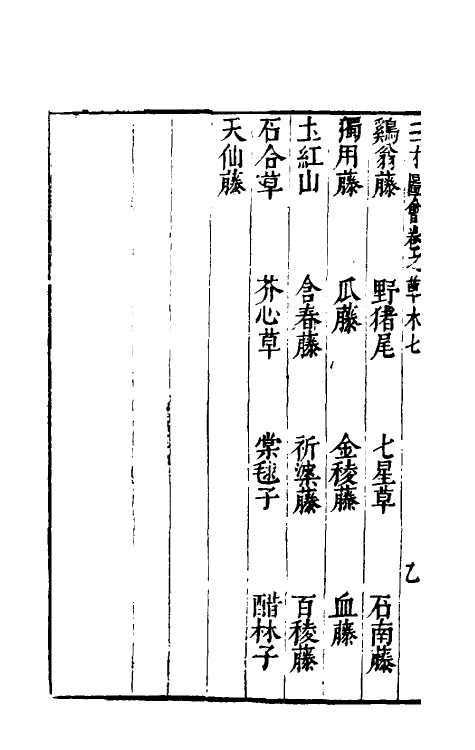 三才圖會卷之草木七 乙
鷄翁藤 野猪尾 七星草 石南藤
獨用藤 瓜藤 金稜藤 血藤
土紅山 含春藤 祈藤 百稜藤
石合草 芥心草 棠毬子 醋林子
天仙藤